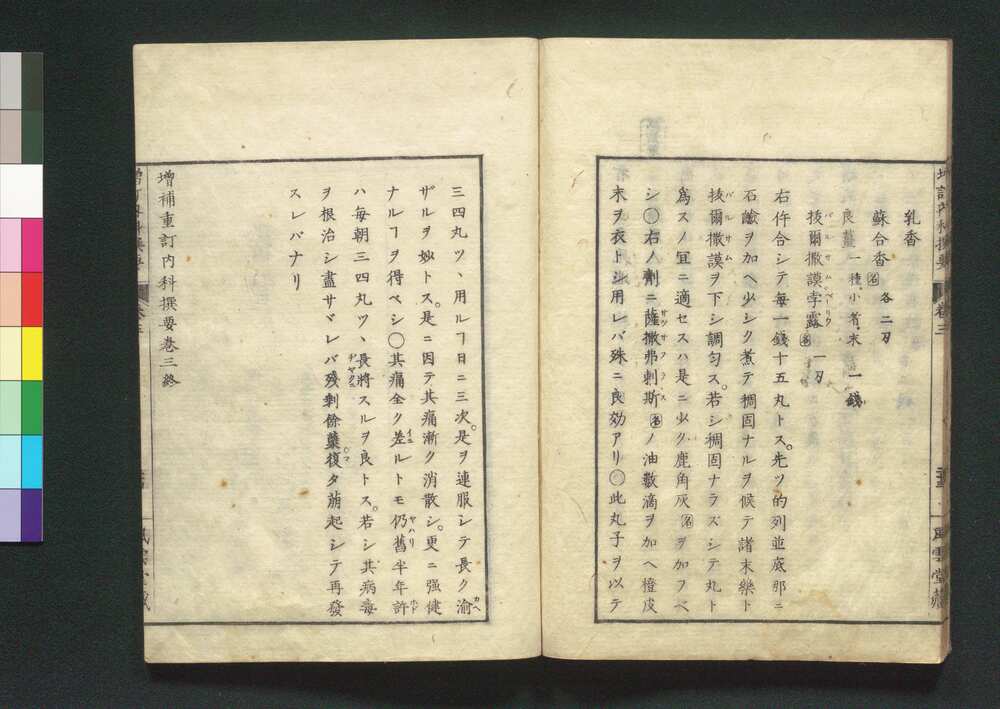 乳香
蘇合香 名 各二刄
良薑 一種小者、末 一錢
抜爾撒謨孛露 名 一刄
右件合シテ毎一錢十五丸トス。先ツ的列並底那ニ
石鹼ヲ加ヘ少シク煮テ稠固ナルヲ候テ諸末藥ト
抜爾撒謨ヲ下シ調匀ス。若シ稠固ナラズシテ丸ト
為スノ宜ニ適セスハ是ニ少ク鹿角灰 名 ヲ加フベ
シ〇右ノ劑ニ薩撒弗刺斯 名 ノ油數滴ヲ加ヘ橙皮
末ヲ衣トシ用レバ殊ニ良効アリ〇此丸子ヲ以テ
増訂内科撰要 卷三 風雲堂藏
三四丸ツヽ用ルヿ日ニ三次。是ヲ連服シテ長ク渝
ザルヲ妙トス。是ニ因テ其痛漸ク消散シ。更ニ強健
ナルヿヲ得ベシ〇其痛全ク差ルトモ仍舊半年許
ハ毎朝三四丸ツヽ長將スルヲ良トス。若シ其病毒
ヲ根治シ盡サヾレバ殘剰餘蘖復タ萠起シテ再發
スレバナリ
增補重訂内科撰要卷三終